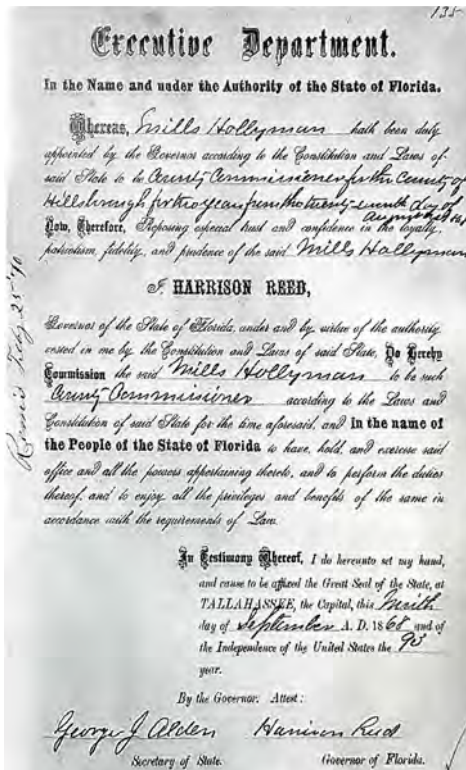 135
Executive Department.
In the Name and under the Authority of the State of Florida.
Whereas, Mills Hollyman hath been duly
appointed by the Governor according to the Constitution and Laws of
said State to be County Commissioner for the County of
Hillsborough for two years from the twenty-ninth day of
August
Now, Therefore, Reposing especial trust and confidence in the loyalty,
patriotism, fidelity, and prudence of the said Mills Hollyman
I HARRISON REED,
Governor of the State of Florida, under and by virtue of the authority
vested in me by the Constitution and Laws of said State, Do Hereby
Commission the said Mills Hollyman to be such
County Commissioner according to the Laws and
Constitution of said State for the time aforesaid, and In the name of
the People of the State of Florida to have, hold, and exercise said
office and all the powers appertaining thereto, and to perform the duties
thereof, and to enjoy all the privileges and benefits of the same in
accordance with the requirements of Law.
In Testimony Whereof, I do hereunto set my hand,
and cause to be affixed the Great Seal of the State, at
TALLAHASSEE, the Capital, this Ninth
day of September A. D. 1868 and of
the Independence of the United States the 93
year.
By the Governor. Attest:
George J Alden Harrison Reed
Secretary of State. Governor of Florida.
Feby 25 '70